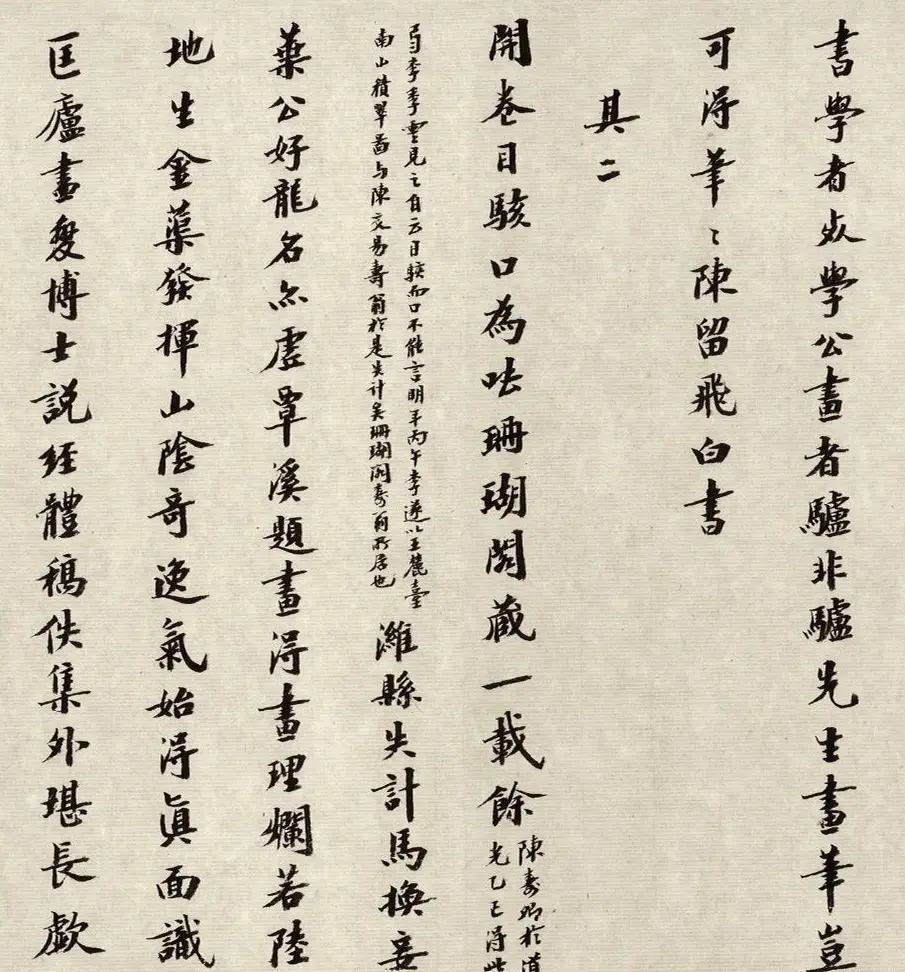 書學者學公畫者驢非驢先生畫筆豈
可得筆〻陳留飛白書
其二
開卷目駭口為呿珊瑚閣蔵一載餘
陳壽卿於道
光乙巳得此
李季雲見之自云目駭而口不能言明年丙午李遂以王麓臺
南山積翠圖与陳交易壽翁於是失計矣珊瑚閣壽翁所居也
濰縣失計馬換妾
葉公好龍名亦虛覃溪題畫得畫理爛若陸
地生金蕖發揮山陰奇逸氣始得眞面識
匡廬畫博士説經體稿佚集外堪長歔